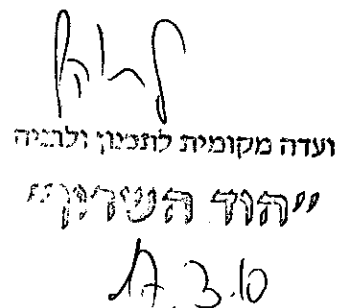 ועדה מקומית לתכנון ולבניה
"הוד השרון"
17.3.10